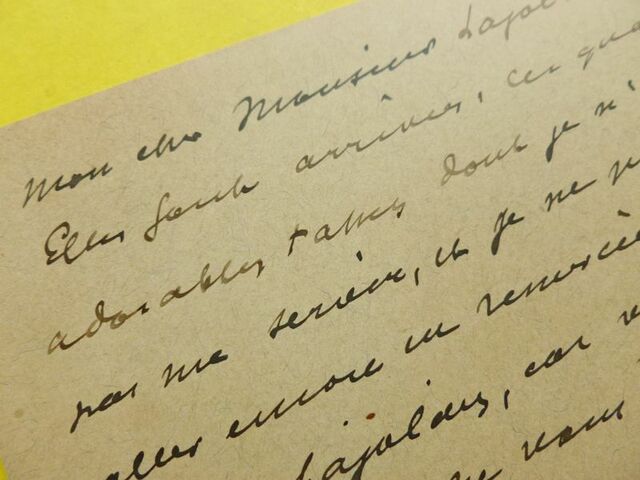 Mon cher Monsieur Lajol
Elles sont arrivées, ces qua
adorables tasses dont je n'
pas me servir, et je ne p
aller encore en remerciè
Lajolais, car v
vous